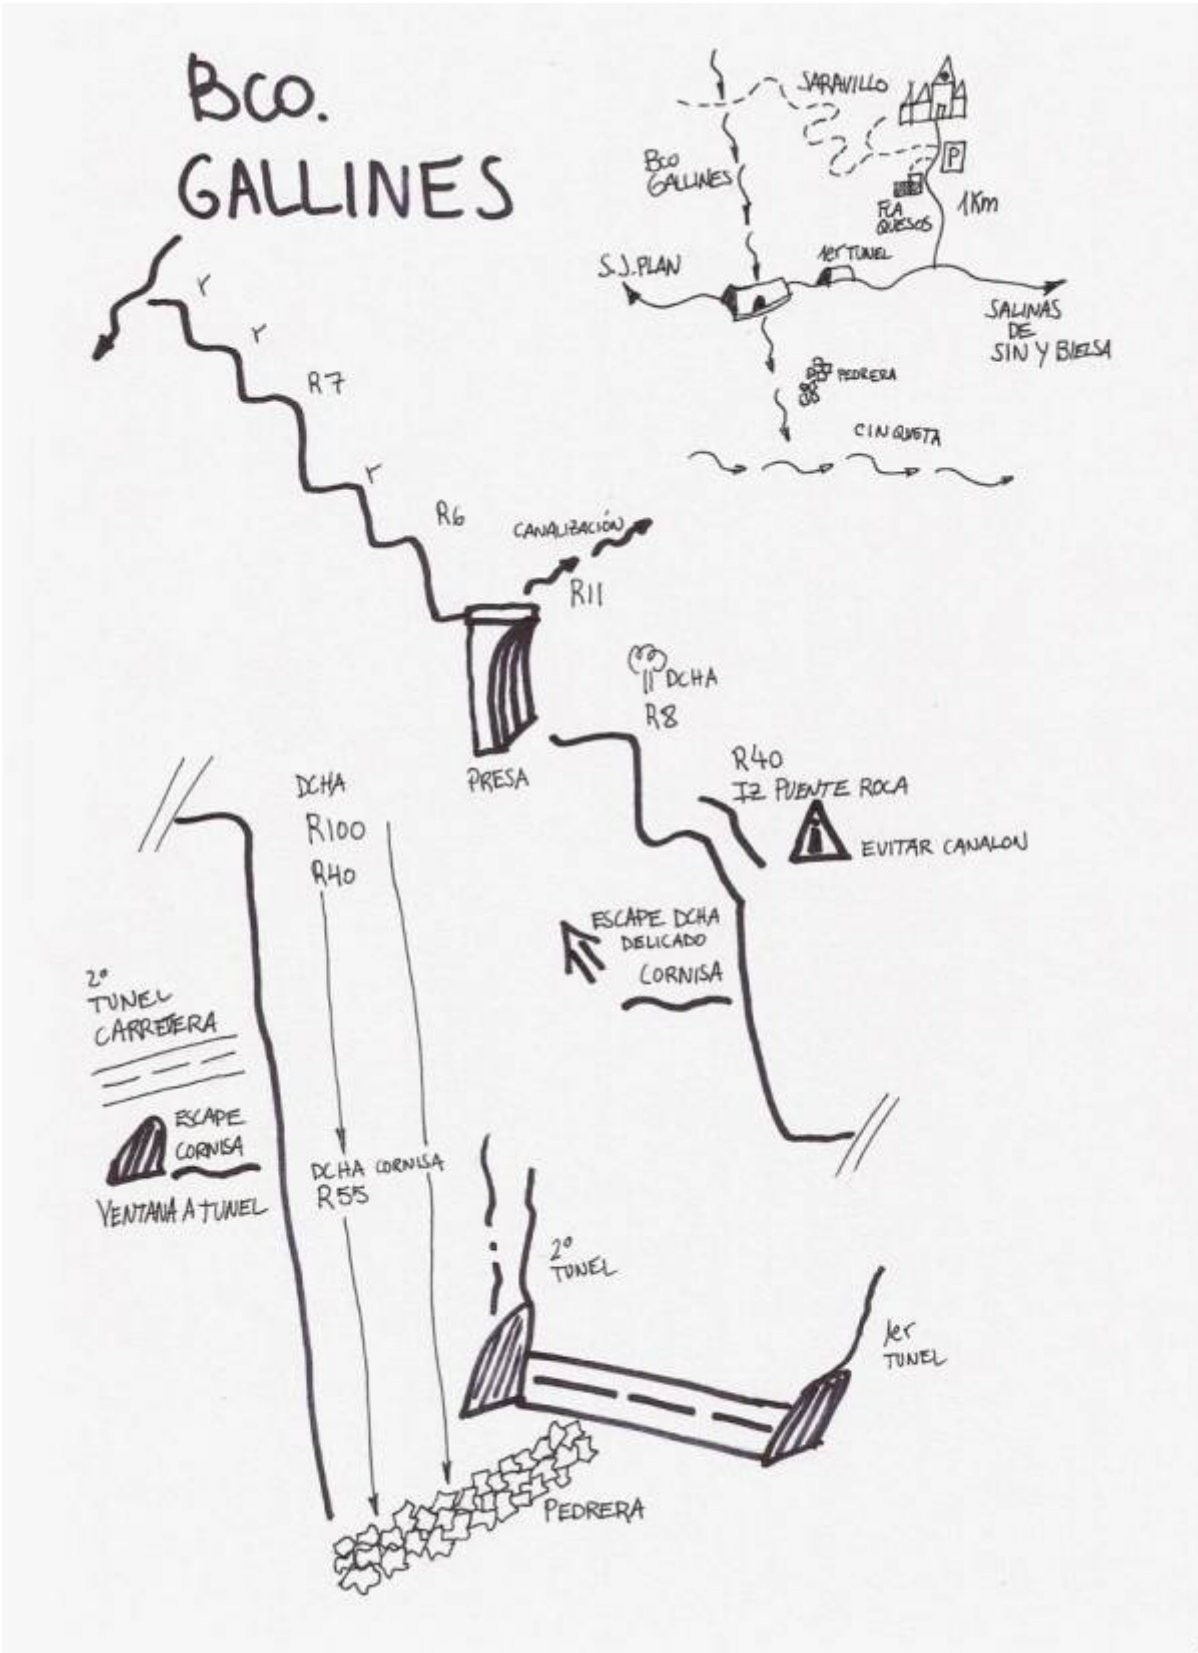 BCO.
GALLINES
SARAVILLO
P
BCO
GALLINES
FCA
QUESOS
1Km
S.J. PLAN
1er TUNEL
SALINAS
DE
SIN Y BIELSA
PEDRERA
CINQUETA
r
r
R7
r
R6
CANALIZACIÓN
R11
PRESA
DCHA
R8
R40
IZ PUENTE ROCA
EVITAR CANALON
ESCAPE DCHA
DELICADO
CORNISA
DCHA
R100
R40
2º
TUNEL
CARRETERA
ESCAPE
CORNISA
VENTANA A TUNEL
DCHA CORNISA
R55
2º
TUNEL
1er
TUNEL
PEDRERA